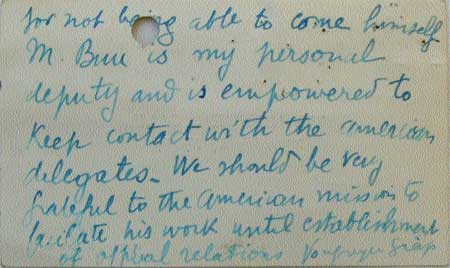 for not being able to come himself
M. Buu is my personal
deputy and is empowered to
keep contact with the american
delegates - We should be very
grateful to the American mission to
facilate his work until establishment
of official relations Vonguyen Giap